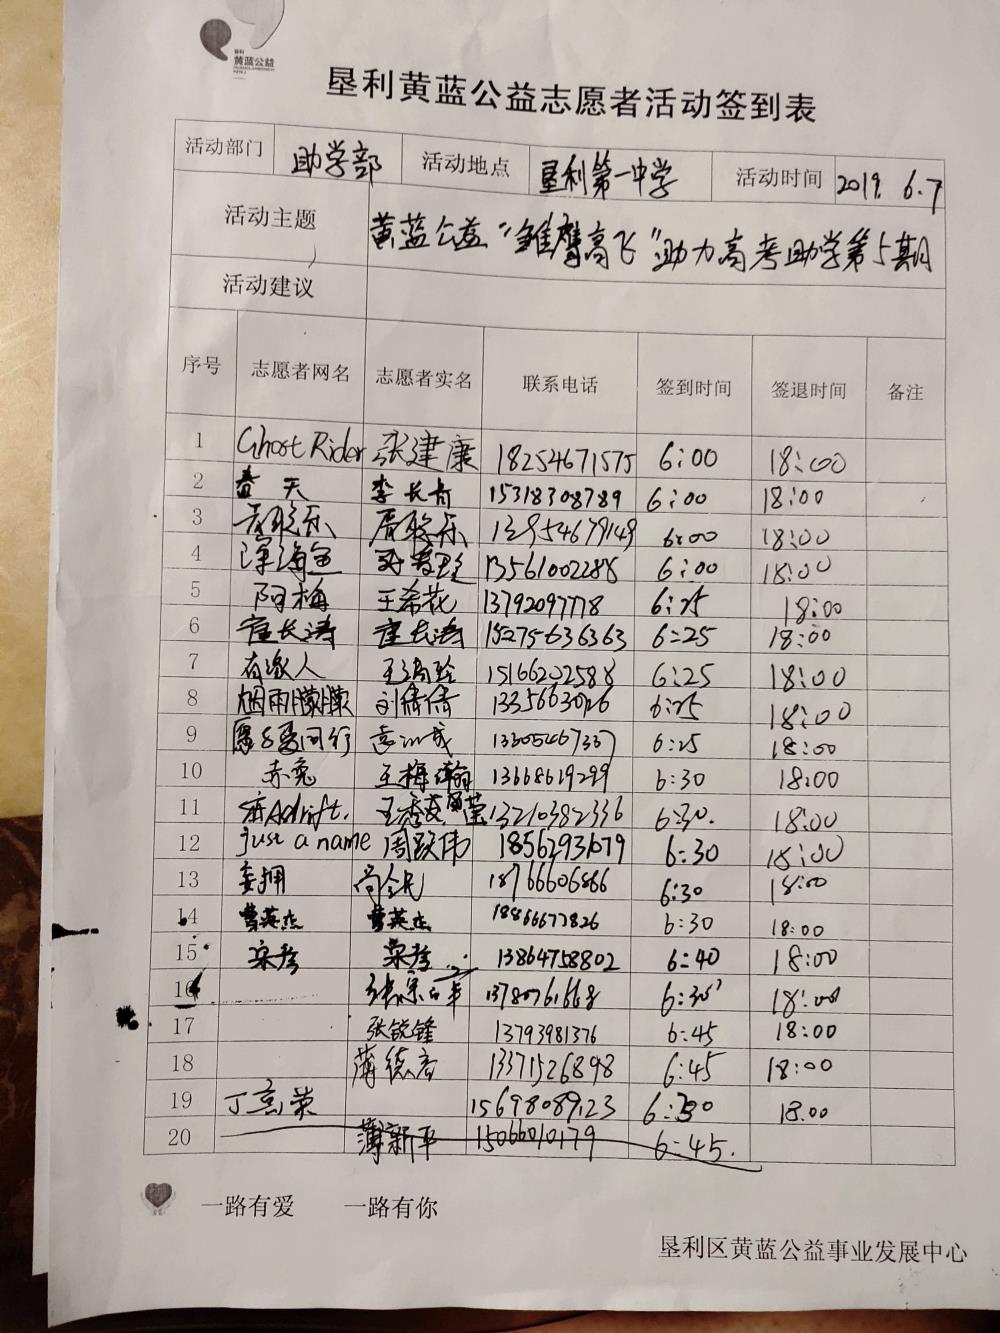 黄蓝公益
垦利黄蓝公益志愿者活动签到表
活动部门 助学部 活动地点 垦利第一中学 活动时间 2019. 6.7
活动主题 黄蓝公益“雏鹰高飞”助力高考助学第5期
活动建议
序号 志愿者网名 志愿者实名 联系电话 签到时间 签退时间 备注
1 Ghost Rider 张建康 18254671575 6:00 18:00
2 春天 李长青 15318308789 6:00 18:00
3 13954679149 6:00 18:00
4 深海鱼 13561002288 6:00 18:00
5 阿梅 王希花 13792097778 6:25 18:00
6 崔长涛 崔长涛 15275636363 6:25 18:00
7 有缘人 15166202588 6:25 18:00
8 烟雨朦朦 刘倩倩 6:25 18:00
9 6:25 18:00
10 赤兔 王梅瀚 13668619299 6:30 18:00
11 Adrift. 13210382336 6:30. 18:00
12 just a name 周跃伟 18562931679 6:30 18:00
13 18766606866 6:30 18:00
14 曹英杰 曹英杰 18866677826 6:30 18:00
15 梁彦 梁彦 13864758802 6:40 18:00
16 6:30 18:00
17 张锐锋 13793981376 6:45 18:00
18 13371526898 6:45 18:00
19 15698089123 6:30 18.00
20 薄新平 15066010179 6:45.
一路有爱 一路有你
垦利区黄蓝公益事业发展中心